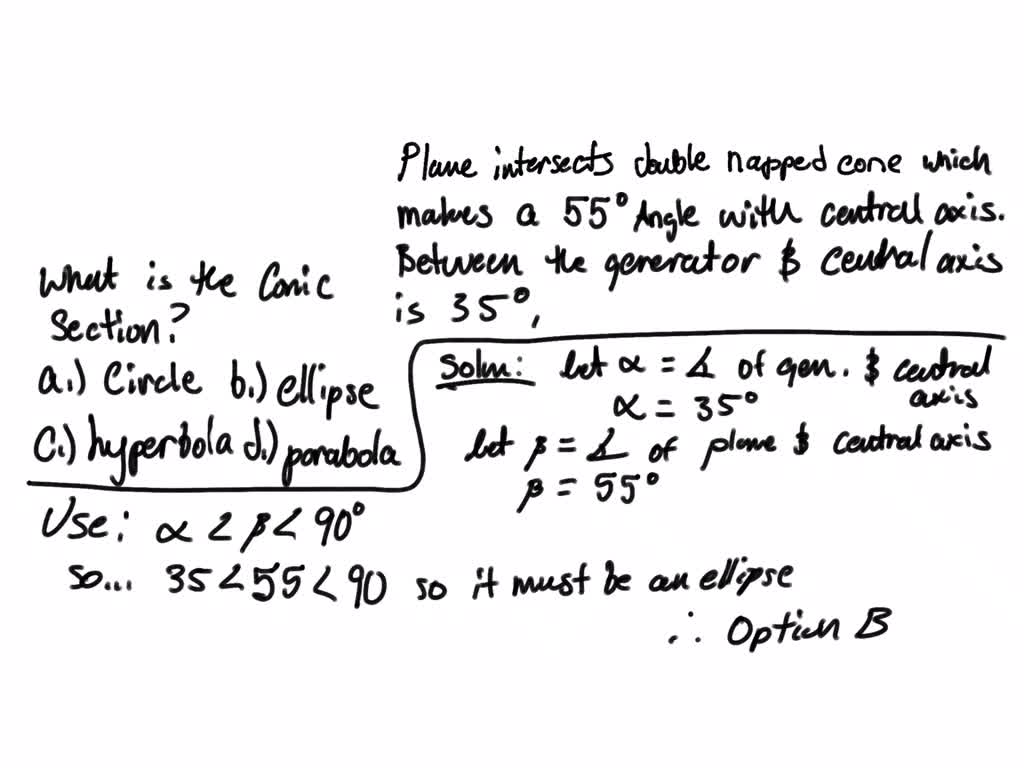 Plane intersects double napped cone which
makes a 55° Angle with central axis.
Between the generator & central axis
is 35°,
What is the Conic
Section?
a.) Circle b.) ellipse
C.) hyperbola d.) parabola
Soln: let α = ∡ of gen. & central
axis
α = 35°
let β = ∡ of plane & central axis
β = 55°
Use: α < β < 90°
so... 35 < 55 < 90 so it must be an ellipse
∴ Option B